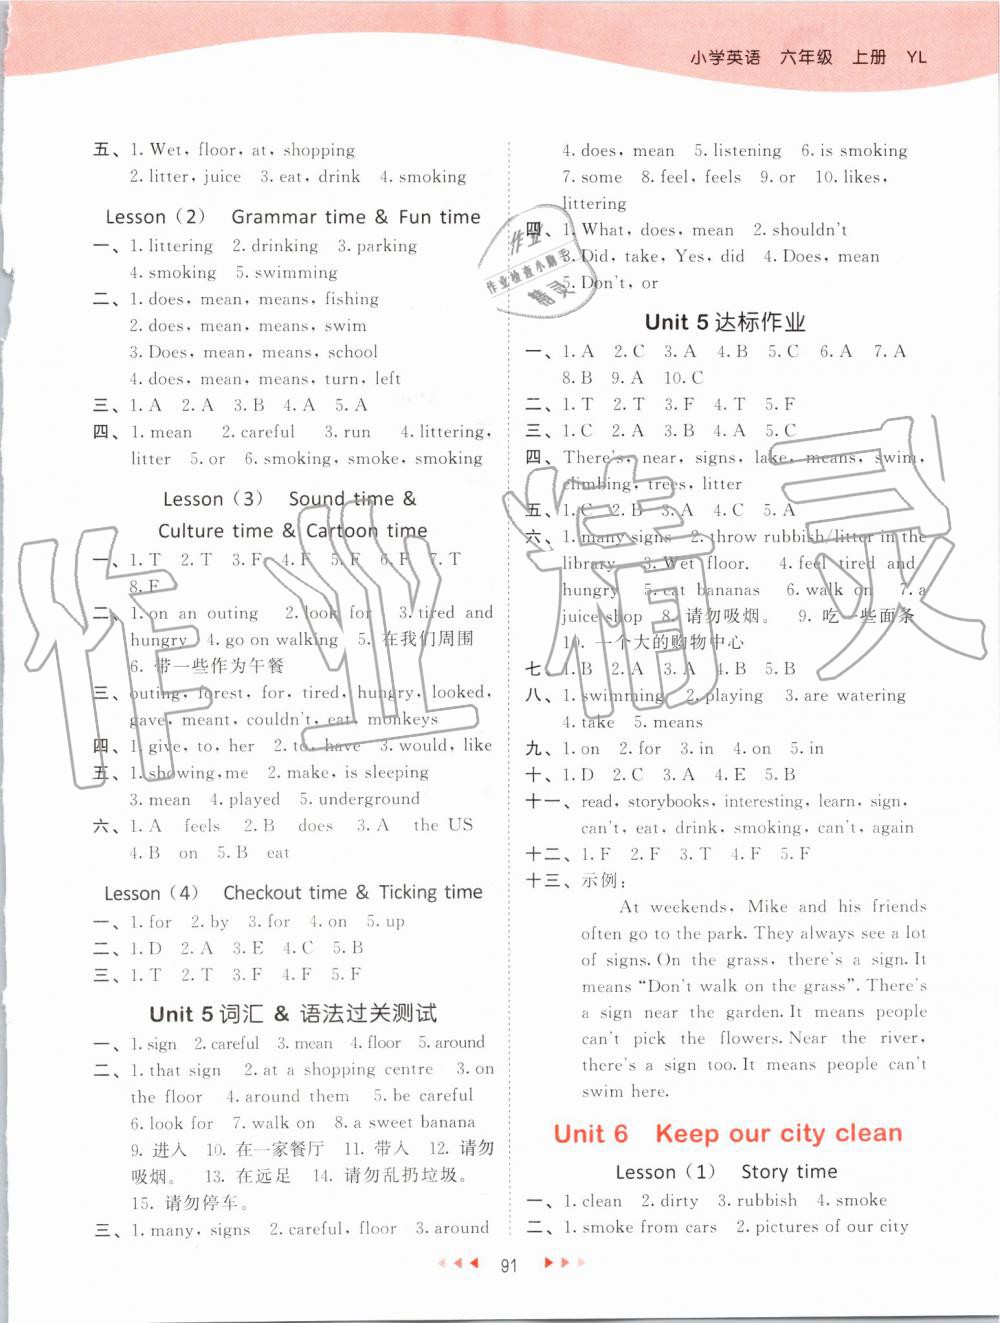 小学英语 六年级 上册 YL
五、1. Wet, floor, at, shopping
2. litter, juice 3. eat, drink 4. smoking
Lesson (2) Grammar time & Fun time
一、1. littering 2. drinking 3. parking
4. smoking 5. swimming
二、1. does, mean, means, fishing
2. does, mean, means, swim
3. Does, mean, means, school
4. does, mean, means, turn, left
三、1. A 2. A 3. B 4. A 5. A
四、1. mean 2. careful 3. run 4. littering,
litter 5. or 6. smoking, smoke, smoking
Lesson (3) Sound time &
Culture time & Cartoon time
一、1. T 2. T 3. F 4. F 5. F 6. F 7. T
8. F
二、1. on an outing 2. look for 3. tired and
hungry 4. go on walking 5. 在我们周围
6. 带一些作为午餐
三、outing, forest, for, tired, hungry, looked,
gave, meant, couldn't, eat, monkeys
四、1. give, to, her 2. to, have 3. would, like
五、1. showing, me 2. make, is sleeping
3. mean 4. played 5. underground
六、1. A feels 2. B does 3. A the US
4. B on 5. B eat
Lesson (4) Checkout time & Ticking time
一、1. for 2. by 3. for 4. on 5. up
二、1. D 2. A 3. E 4. C 5. B
三、1. T 2. T 3. F 4. F 5. F
Unit 5 词汇 & 语法过关测试
一、1. sign 2. careful 3. mean 4. floor 5. around
二、1. that sign 2. at a shopping centre 3. on
the floor 4. around them 5. be careful
6. look for 7. walk on 8. a sweet banana
9. 进入 10. 在一家餐厅 11. 带入 12. 请勿
吸烟。 13. 在远足 14. 请勿乱扔垃圾。
15. 请勿停车。
三、1. many, signs 2. careful, floor 3. around
4. does, mean 5. listening 6. is smoking
7. some 8. feel, feels 9. or 10. likes,
littering
四、1. What, does, mean 2. shouldn't
3. Did, take, Yes, did 4. Does, mean
5. Don't, or
Unit 5 达标作业
一、1. A 2. C 3. A 4. B 5. C 6. A 7. A
8. B 9. A 10. C
二、1. T 2. T 3. F 4. T 5. F
三、1. C 2. A 3. B 4. A 5. C
四、There's, near, signs, lake, means, swim,
climbing, trees, litter
五、1. C 2. B 3. A 4. C 5. A
六、1. many signs 2. throw rubbish/litter in the
library 3. Wet floor. 4. feel tired and
hungry 5. eat bananas 6. walk on 7. a
juice shop 8. 请勿吸烟。 9. 吃一些面条
10. 一个大的购物中心
七、1. B 2. A 3. A 4. B 5. B
八、1. swimming 2. playing 3. are watering
4. take 5. means
九、1. on 2. for 3. in 4. on 5. in
十、1. D 2. C 3. A 4. E 5. B
十一、read, storybooks, interesting, learn, sign,
can't, eat, drink, smoking, can't, again
十二、1. F 2. F 3. T 4. F 5. F
十三、示例:
At weekends, Mike and his friends
often go to the park. They always see a lot
of signs. On the grass, there's a sign. It
means “Don't walk on the grass”. There's
a sign near the garden. It means people
can't pick the flowers. Near the river,
there's a sign too. It means people can't
swim here.
Unit 6 Keep our city clean
Lesson (1) Story time
一、1. clean 2. dirty 3. rubbish 4. smoke
二、1. smoke from cars 2. pictures of our city
91
作业
作业检查小助手
精灵
作业精灵